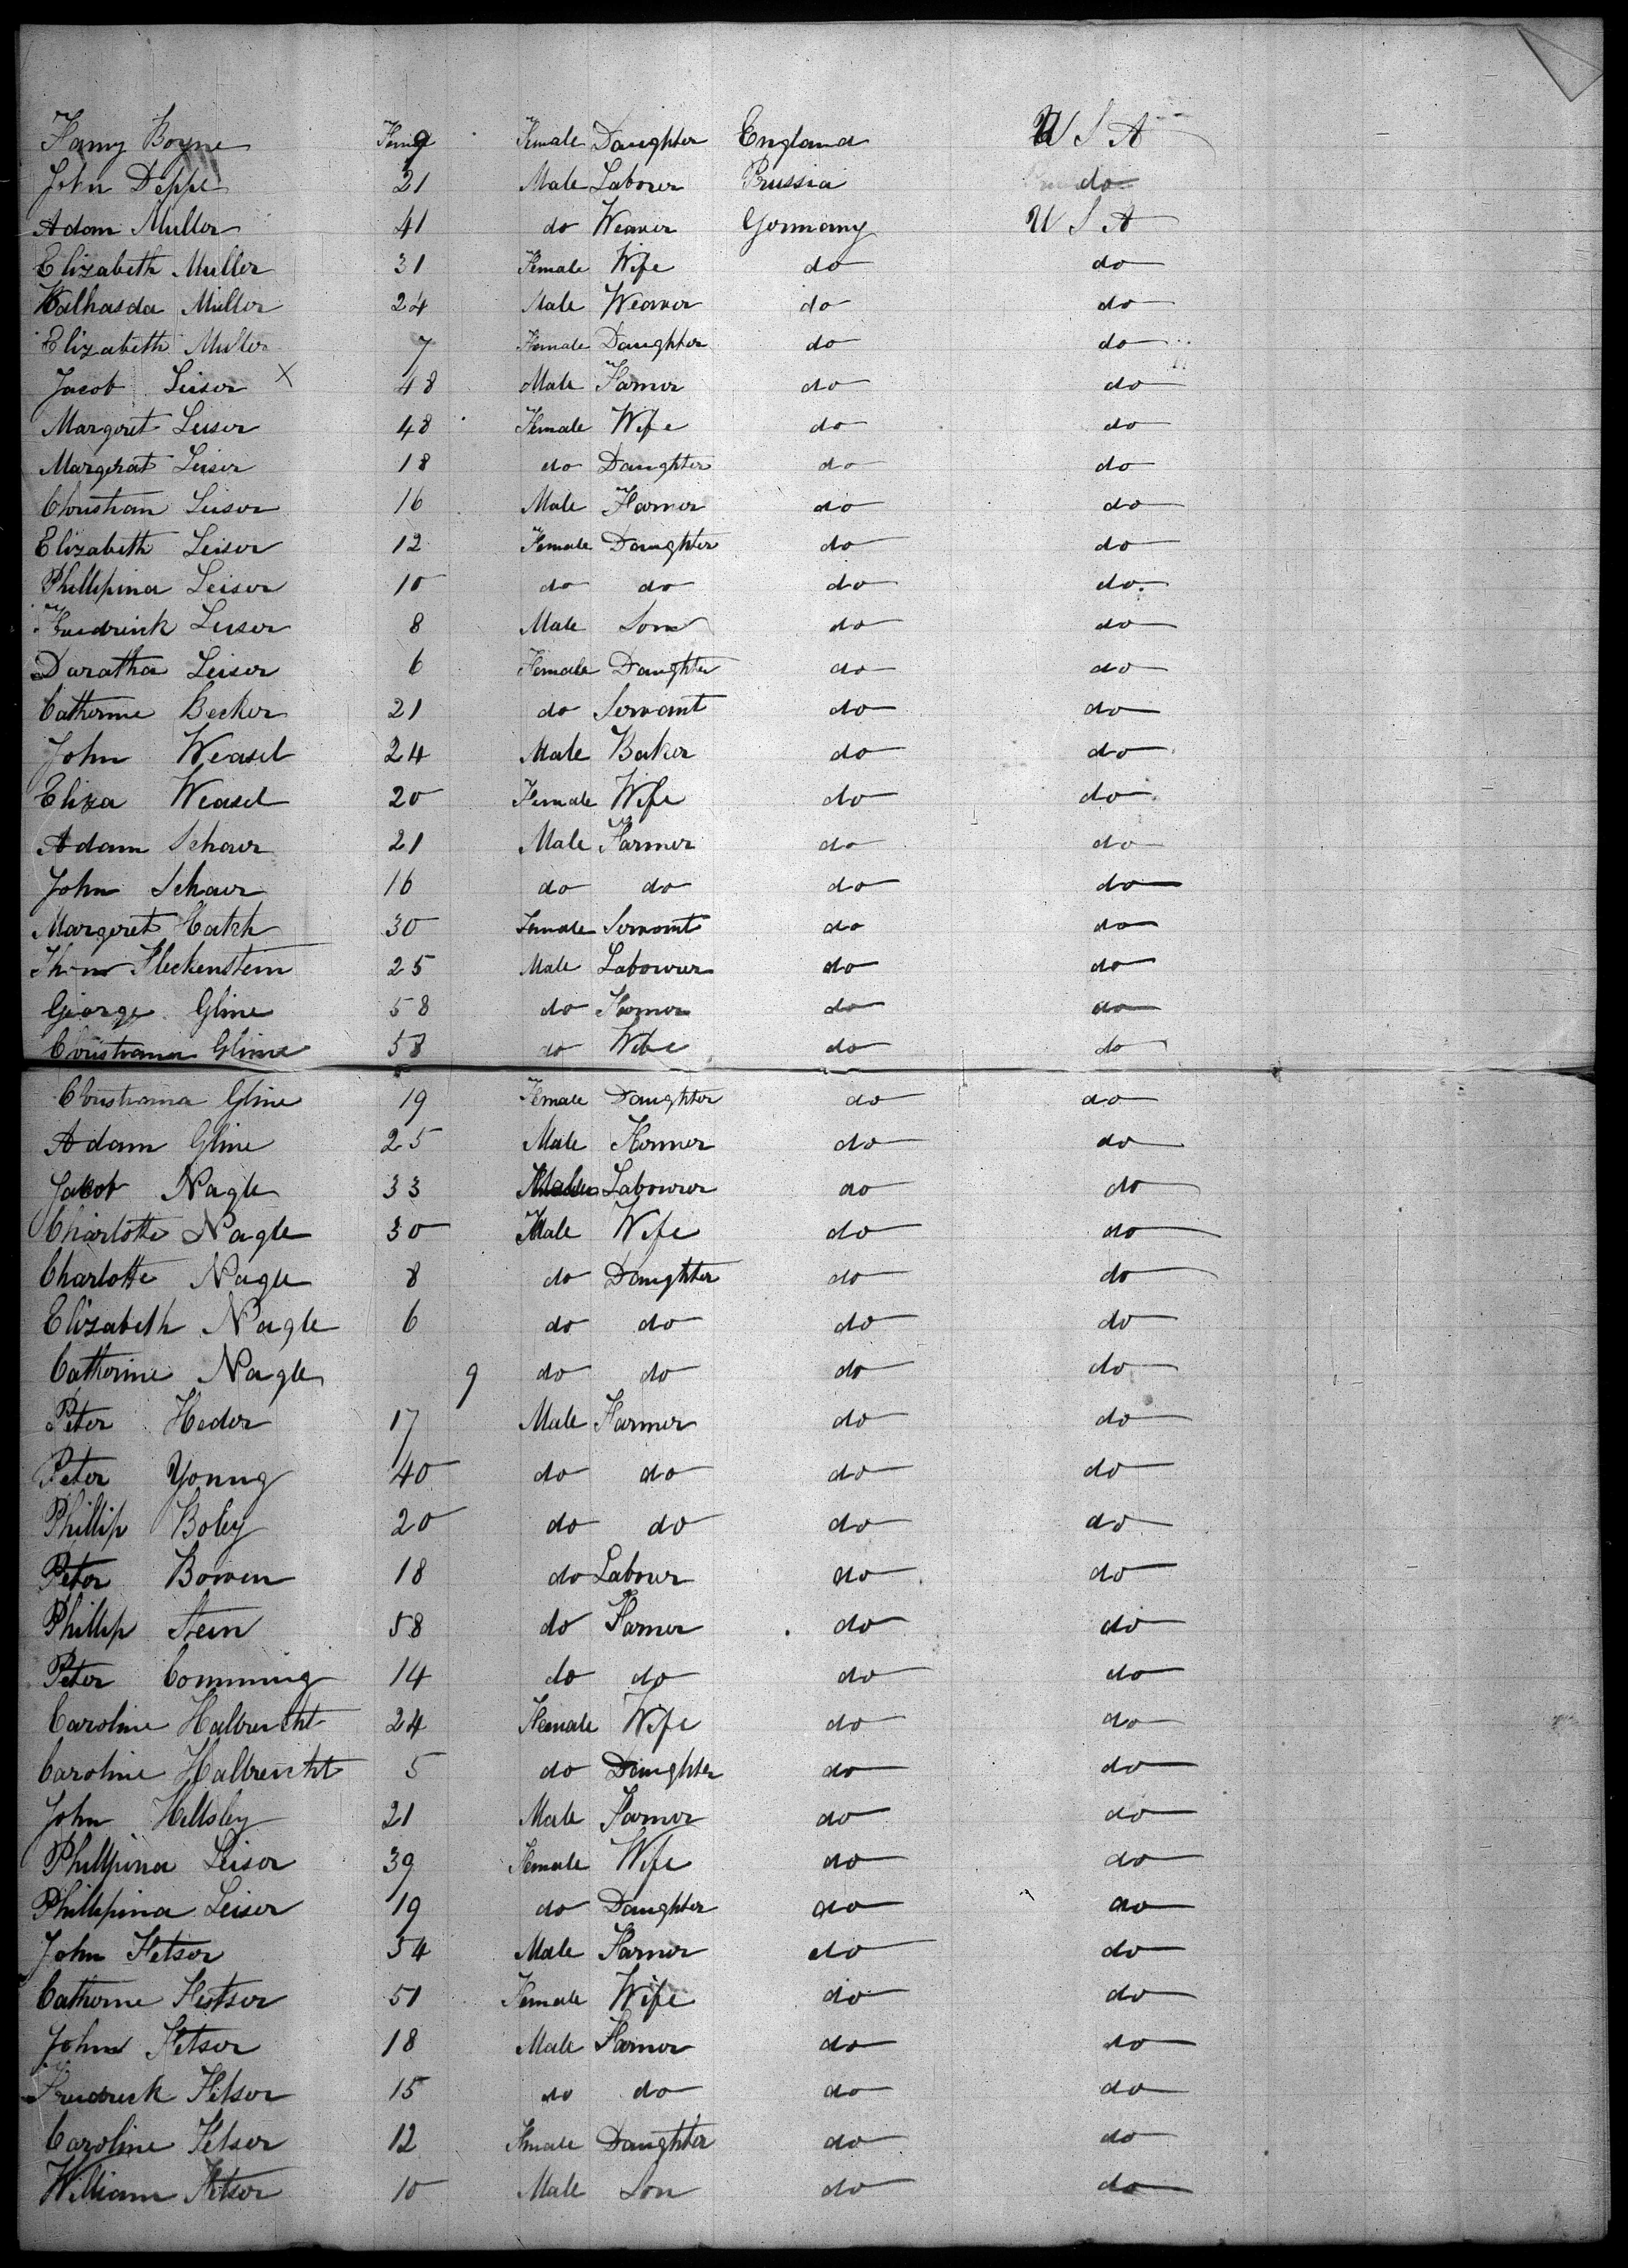 Fanny Boyne 9 Female Daughter England U S A
John Deppe 21 Male Laborer Prussia do
Adam Muller 41 do Weaver Germany U S A
Elizabeth Muller 31 Female Wife do do
Muller 24 Male Weaver do do
Elizabeth Muller 7 Female Daughter do do
Jacob Leiser X 48 Male Farmer do do
Margeret Leiser 48 Female Wife do do
Margerat Leiser 18 do Daughter do do
Christian Leiser 16 Male Farmer do do
Elizabeth Leiser 12 Female Daughter do do
Phillipina Leiser 10 do do do do
Fredrick Leiser 8 Male Son do do
Doratha Leiser 6 Female Daughter do do
Catherine Becker 21 do Servant do do
John Weasel 24 Male Baker do do
Eliza Weasel 20 Female Wife do do
Adam Schaur 21 Male Farmer do do
John Schaur 16 do do do do
Margeret Hatch 30 Female Servant do do
Fleckenstein 25 Male Labourer do do
George Gline 58 do Farmer do do
Christiana Gline 58 do Wife do do
Christiana Gline 19 Female Daughter do do
Adam Gline 25 Male Farmer do do
Jacob Nagle 33 Male Labourer do do
Charlotte Nagle 30 Male Wife do do
Charlotte Nagle 8 do Daughter do do
Elizabeth Nagle 6 do do do do
Catherine Nagle 9 do do do do
Peter Heder 17 Male Farmer do do
Peter Young 40 do do do do
Phillip Boley 20 do do do do
Peter Bowen 18 do Labourer do do
Phillip Stein 58 do Farmer do do
Peter Comming 14 do do do do
Caroline Halbrecht 24 Female Wife do do
Caroline Halbrecht 5 do Daughter do do
John Hellsley 21 Male Farmer do do
Phillipina Leiser 39 Female Wife do do
Phillipina Leiser 19 do Daughter do do
John Fetser 54 Male Farmer do do
Catherine Fetser 51 Female Wife do do
John Fetser 18 Male Farmer do do
Fredrick Fetser 15 do do do do
Caroline Fetser 12 Female Daughter do do
William Fetser 10 Male Son do do